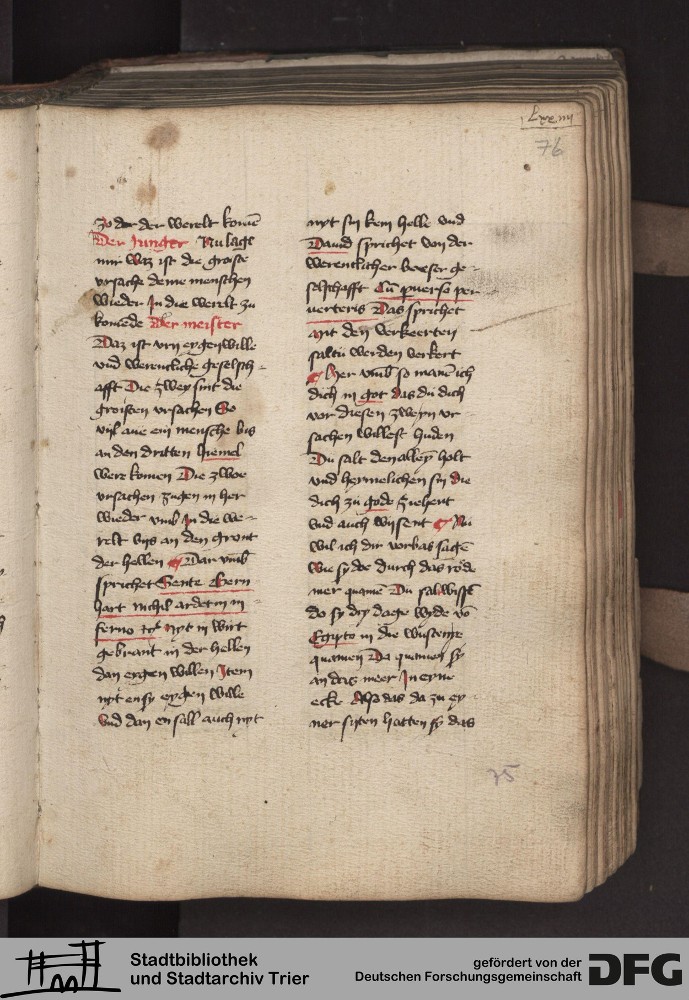 Lxxiiii
76
zo der der werelt komē
Der Junger Nu sage
mir waz ist die groiste
ursache deme menschen
wieder In die werelt zu
komēde Der meister
Daz ist vry eygenwille
vnd werentliche geselsch-
afft Die zwey sint die
groisten vrsachen So
vyl aue ein mensche bis
an den dritten hiemel
were komen Die zwoe
vrsachen zugen in her
wieder vmb In die we-
relt bys an den gront
der hellen Dar vmb
sprichet Sente Bern
hart nichil ardet in in
ferno nyt in wirt
gebrant in der hellen
dan eygen willen Item
nyt ensy eygen wille
Vnd dan en sall auch nyt
nyt sy kein helle vnd
Dauid sprichet von der
werentlicher boeser ge-
selschafft Cū pūerso per
uerteris Das sprichet
Myt den verkeerten
saltu werden verkert
Her vmb so manē ich
dich in got das du dich
vor diesen zweyn vr-
sachen willest huden
Du salt den alleyn holt
vnd heymelichen syn die
dich zu gode ziehent
vnd auch wysent Nu
wil ich dir vorbas sagē
Wie sy doe durch das rode
mer quamē Du salt wissē
do sy dry dage wyde vō
Egipto in die wustenye
quamen Da quamen sy
an das meer In eyne
ecke Also das da zu ey-
ner syten hatten sy das
75
Stadtbibliothek
und Stadtarchiv Trier
gefördert von der
Deutschen Forschungsgemeinschaft
DFG